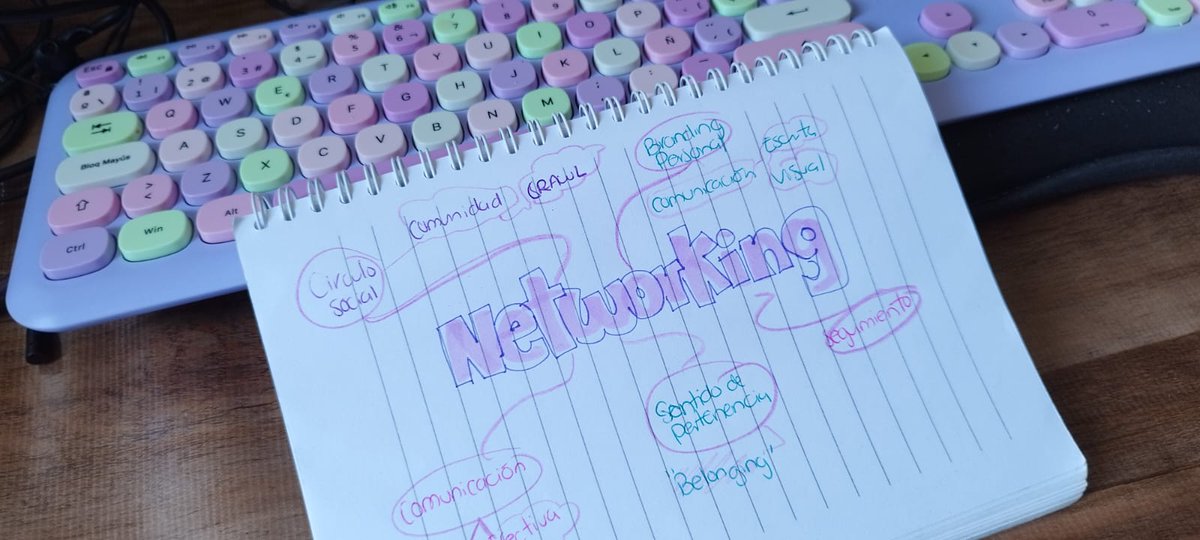 Esc
Q
W
E
R
T
Y
U
I
O
P
A
S
D
F
G
H
J
K
L
Ñ
Bloq Mayús
Z
X
C
V
B
N
M
Ctrl
Win
Alt
Comunidad
Branding
Personal
Escrita
comunicación
visual
Circulo
social
Networking
seguimiento
Sentido de
pertenencia
"Belonging"
Comunicación